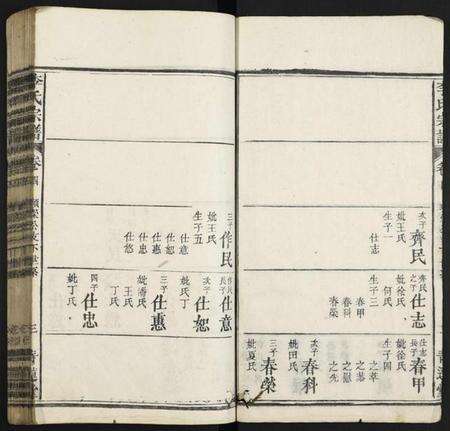 李氏宗譜
卷
次子
齊民
妣王氏
生子一
仕志
齊民
之子
仕志
妣
何氏
生子三
春甲
春科
春榮
仕志
長子
春甲
妣徐氏
生子四
之孝
之
之
之先
次子
春科
妣田氏
三子
春榮
妣夏氏
李氏宗譜
卷
三
青蓮堂
三子
作民
妣王氏
生子五
仕意
仕恕
仕惠
仕忠
仕悠
作民
長子
仕意
次子
仕恕
妣氏丁
三子
仕惠
妣潘氏
王氏
丁氏
四子
仕忠
妣丁氏